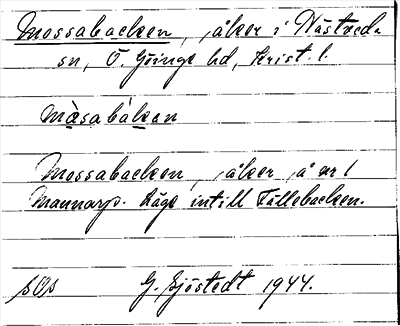 Mossabacken, åker i Näsveds
sn, Ö. Göinge hd, Krist. l.
måsabàken
Mossabacken, åker å nr 1
Mannarp. Läge intill Fällebacken.
G. Sjöstedt 1944.